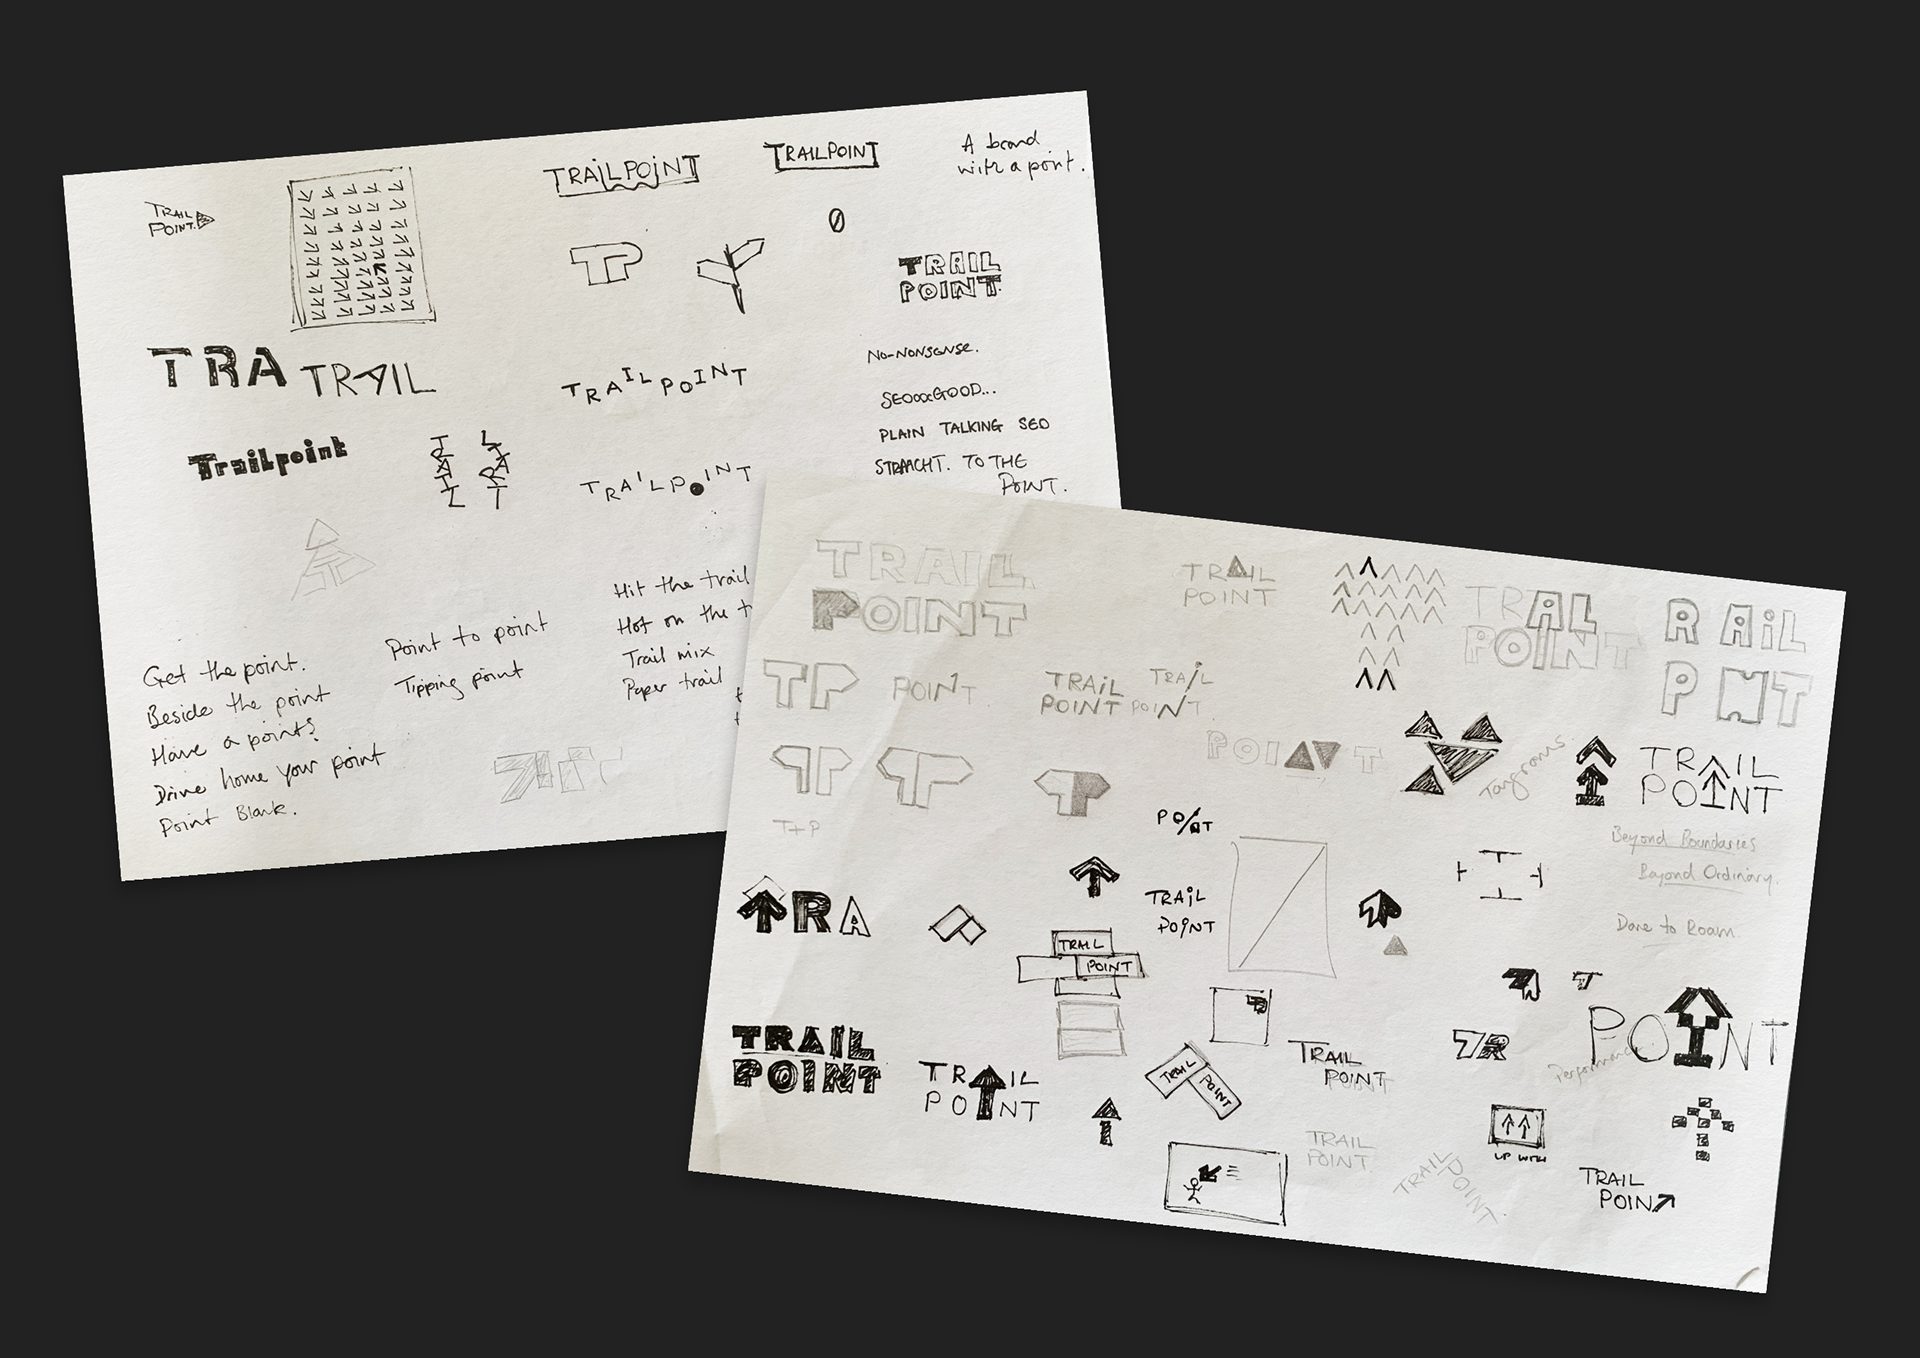 TRAIL
POINT.
TRAILPOINT
TRAILPOINT
A brand
with a point.
TP
TRAIL
POINT.
TRA
TRAIL
TRAILPOINT
No-NONSENSE.
SEOooxGOOD...
PLAIN TALKING SEO
STRAIGHT. TO THE
POINT.
Trailpoint
TRAIL
TRAIL
TRAILPOINT
Hit the trail
Hot on the t
Trail mix
Paper trail
Point to point
Tipping point
Get the point.
Beside the point
Have a point?
Drive home your point
Point Blank.
TRAIL
POINT
TRAIL
POINT
TRAIL
POINT
RAiL
P NT
TP
POINT.
TRAiL
POINT
TRAiL
POINT.
POI T
Tangrams.
TRAIL
POINT
TP
TP
T+P
POINT
Beyond Boundaries
Beyond Ordinary.
Dare to Roam
RA
TRAiL
POINT
TRAIL
POINT
TRAIL
POINT
TR IL
PO NT
TRAIL
POINT
TRAIL
POINT
TR
T
POINT
Performance
TRAIL
POINT
TRAIL
POINT
UP WITH
TRAIL
POIN